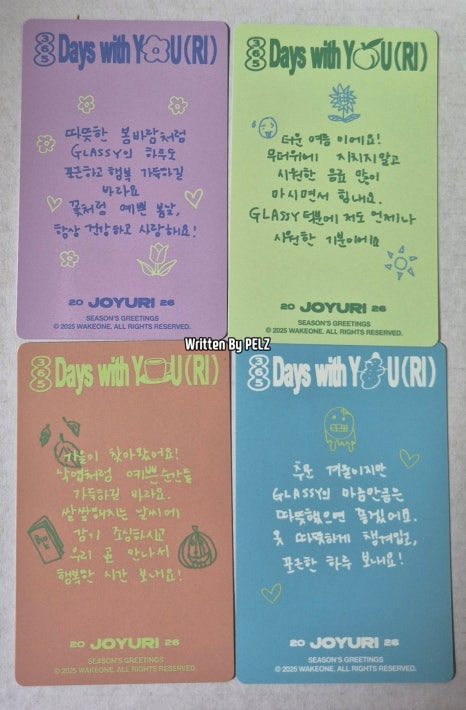 365 Days with YOU(RI)
따뜻한 봄바람처럼
GLASSY의 하루도
포근하고 행복 가득하길
바라요
꽃처럼 예쁜 봄날,
항상 건강하고 사랑해요!
20 JOYURI 26
SEASON'S GREETINGS
© 2025 WAKEONE. ALL RIGHTS RESERVED.
365 Days with YOU(RI)
더운 여름 이에요!
무더위에 지치지말고
시원한 음료 많이
마시면서 힘내요.
GLASSY 덕분에 저도 언제나
시원한 기분이에요
20 JOYURI 26
SEASON'S GREETINGS
© 2025 WAKEONE. ALL RIGHTS RESERVED.
Written By PELZ
365 Days with YOU(RI)
가을이 찾아왔어요!
낙엽처럼 예쁜 순간들
가득하길 바라요.
쌀쌀해지는 날씨에
감기 조심하시고
우리 곧 만나서
행복한 시간 보내요!
20 JOYURI 26
SEASON'S GREETINGS
© 2025 WAKEONE. ALL RIGHTS RESERVED.
365 Days with YOU(RI)
추운 겨울이지만
GLASSY의 마음만큼은
따뜻했으면 좋겠어요.
옷 따뜻하게 챙겨입고,
포근한 하루 보내요!
20 JOYURI 26
SEASON'S GREETINGS
© 2025 WAKEONE. ALL RIGHTS RESERVED.